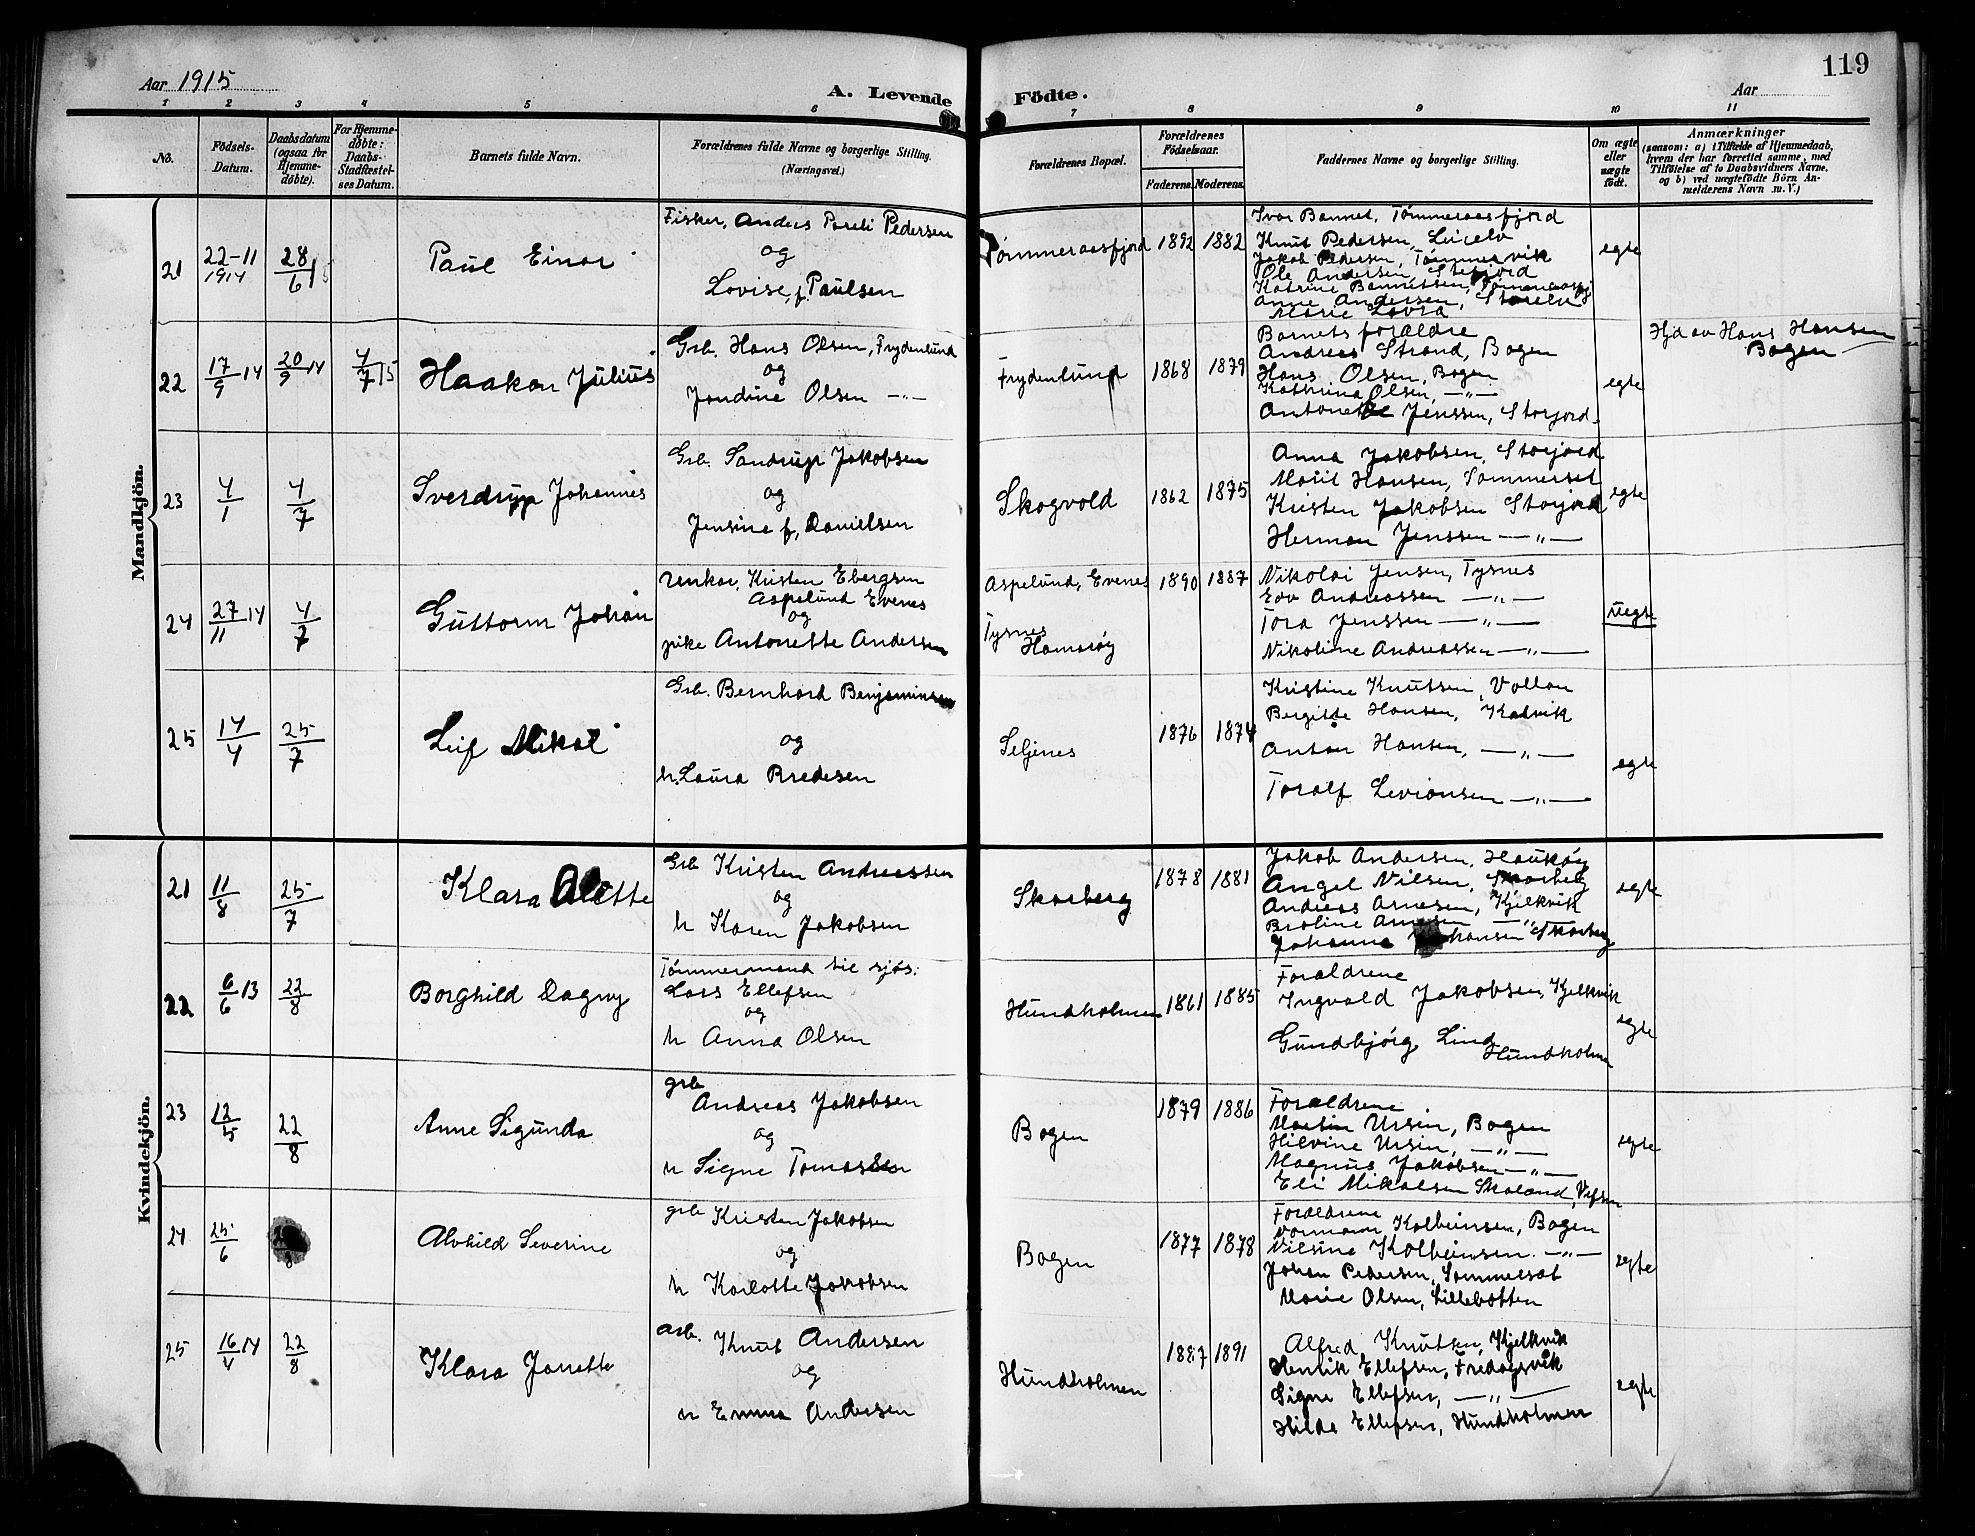 119
Aar 1915
A. Levende Födte.
Aar
1 2 3 4 5 6 7 8 9 10 11
No.
Födsels-
Datum.
Daabsdatum
(ogsaa for
Hjemme-
döbte).
For Hjemme-
döbte:
Daabs-
Stadfæstel-
ses Datum.
Barnets fulde Navn.
Forældrenes fulde Navne og borgerlige Stilling.
(Næringsvei.)
Forældrenes Bopæl.
Forældrenes
Födselsaar.
Faderens. Moderens.
Faddernes Navne og borgerlige Stilling.
Om ægte
eller
uægte
födt.
Anmærkninger
(saasom: a) i Tilfælde af Hjemmedaab,
hvem der har forrettet samme, med
Tilföielse af to Daabsvidners Navne,
og b) ved uægtefödte Börn An-
melderens Navn m. V.)
Mandkjön.
21 22-11 1914 28/6 15 Paul Einar
Fisker, Anders Pareli Pedersen
og
Lovise, f. Paulsen
Tømmeraasfjord 1892 1882
Ivar Bannet, Tømmeraasfjord
Knut Pedersen, Leirelv
Jakob Pedersen, Tømmervik
Ole Andersen, Stefjord
Katrine Bannetsen, Tømmeraasfj
Anne Andersen, Storelv
Marie Lavra
egte
22 17/9 14 20/9 14 4/7 15 Haakon Julius
Grb. Hans Olsen, Frydenlund
og
Jondine Olsen —"—
Frydenlund 1868 1879
Barnets forældre
Andreas Strand, Bogen
Hans Olsen, Bogen
Kathrina Olsen, —"—
Antonette Jenssen, Storjord.
egte
Hjd av Hans Hansen
Bogen
23 4/1 4/7 Sverdrup Johannes
Grb. Sandrup Jakobsen
og
Jensine f, Danielsen
Skogvold 1862 1875
Anna Jakobsen, Storjord
Marit Hansen, Sommerset
Kristen Jakobsen Storjord
Herman Jenssen —"—
egte
24 27/11 14 4/7 Guttorm Johan
Unkar, Kristen Ebergsen
Aspelund Evenes
og
pike Antonette Andersen
Aspelund, Evenes
Tysnes
Hamarøy
1890 1887
Nikolai Jensen, Tysnes
Edv Andreassen —"—
Tora Jenssen —"—
Nikoline Andreassen —"—
uegte
25 14/4 25/7 Leif Mikal
Grb. Bernhard Benjaminsen
og
h. Laura Bredesen
Seljenes 1876 1874
Kristine Knutsen, Vollan
Bergitte Hansen, Kalvik
Anton Hansen, —"—
Toralf Levionsen —"—
egte
Kvindekjön.
21 11/8 25/7 Klara Alette
Grb Kristen Andreassen
og
h Karen Jakobsen
Skarberg 1878 1881
Jakob Andersen, Haukøy
Angel Nilsen, Skarberg
Andreas Arnesen, Kjelkvik
Broline Arnesen —"—
Johanna Johansen Skarberg
egte
22 6/6 13 22/8 Borghild Dagny
Tømmermand til sjøs.
Lars Ellefsen
og
h Anna Olsen
Hundholmen 1861 1885
Forældrene
Ingvald Jakobsen, Kjelkvik
Gundbjørg Lind
Hundholmen
egte
23 12/5 22/8 Anne Sigunda
grb
Andreas Jakobsen
og
h Signe Tomassen
Bogen 1879 1886
Forældrene
Martin Ursin, Bogen
Hilvine Ursin, —"—
Magnus Jakobsen —"—
Eli Mikalsen Skaland, Vefsen
egte
24 25/6 Alvhild Severine
grb Kristen Jakobsen
og
h Karlotte Jakobsen
Bogen 1877 1878
Forældrene
Normann Kolbeinsen, Bogen
Nilsine Kolbeinsen. —"—
Johan Pedersen, Sommerset
Marie Olsen, Lillebotten
egte
25 16/4 14 22/8 Klara Janette
arb. Knut Andersen
og
h Emma Andersen
Hundholmen 1887 1891
Alfred Knutsen, Kjelkvik
Henrik Ellefsen, Fredagsvik
Signe Ellefsen, —"—
Hilda Ellefsen, Hundholmen
egte